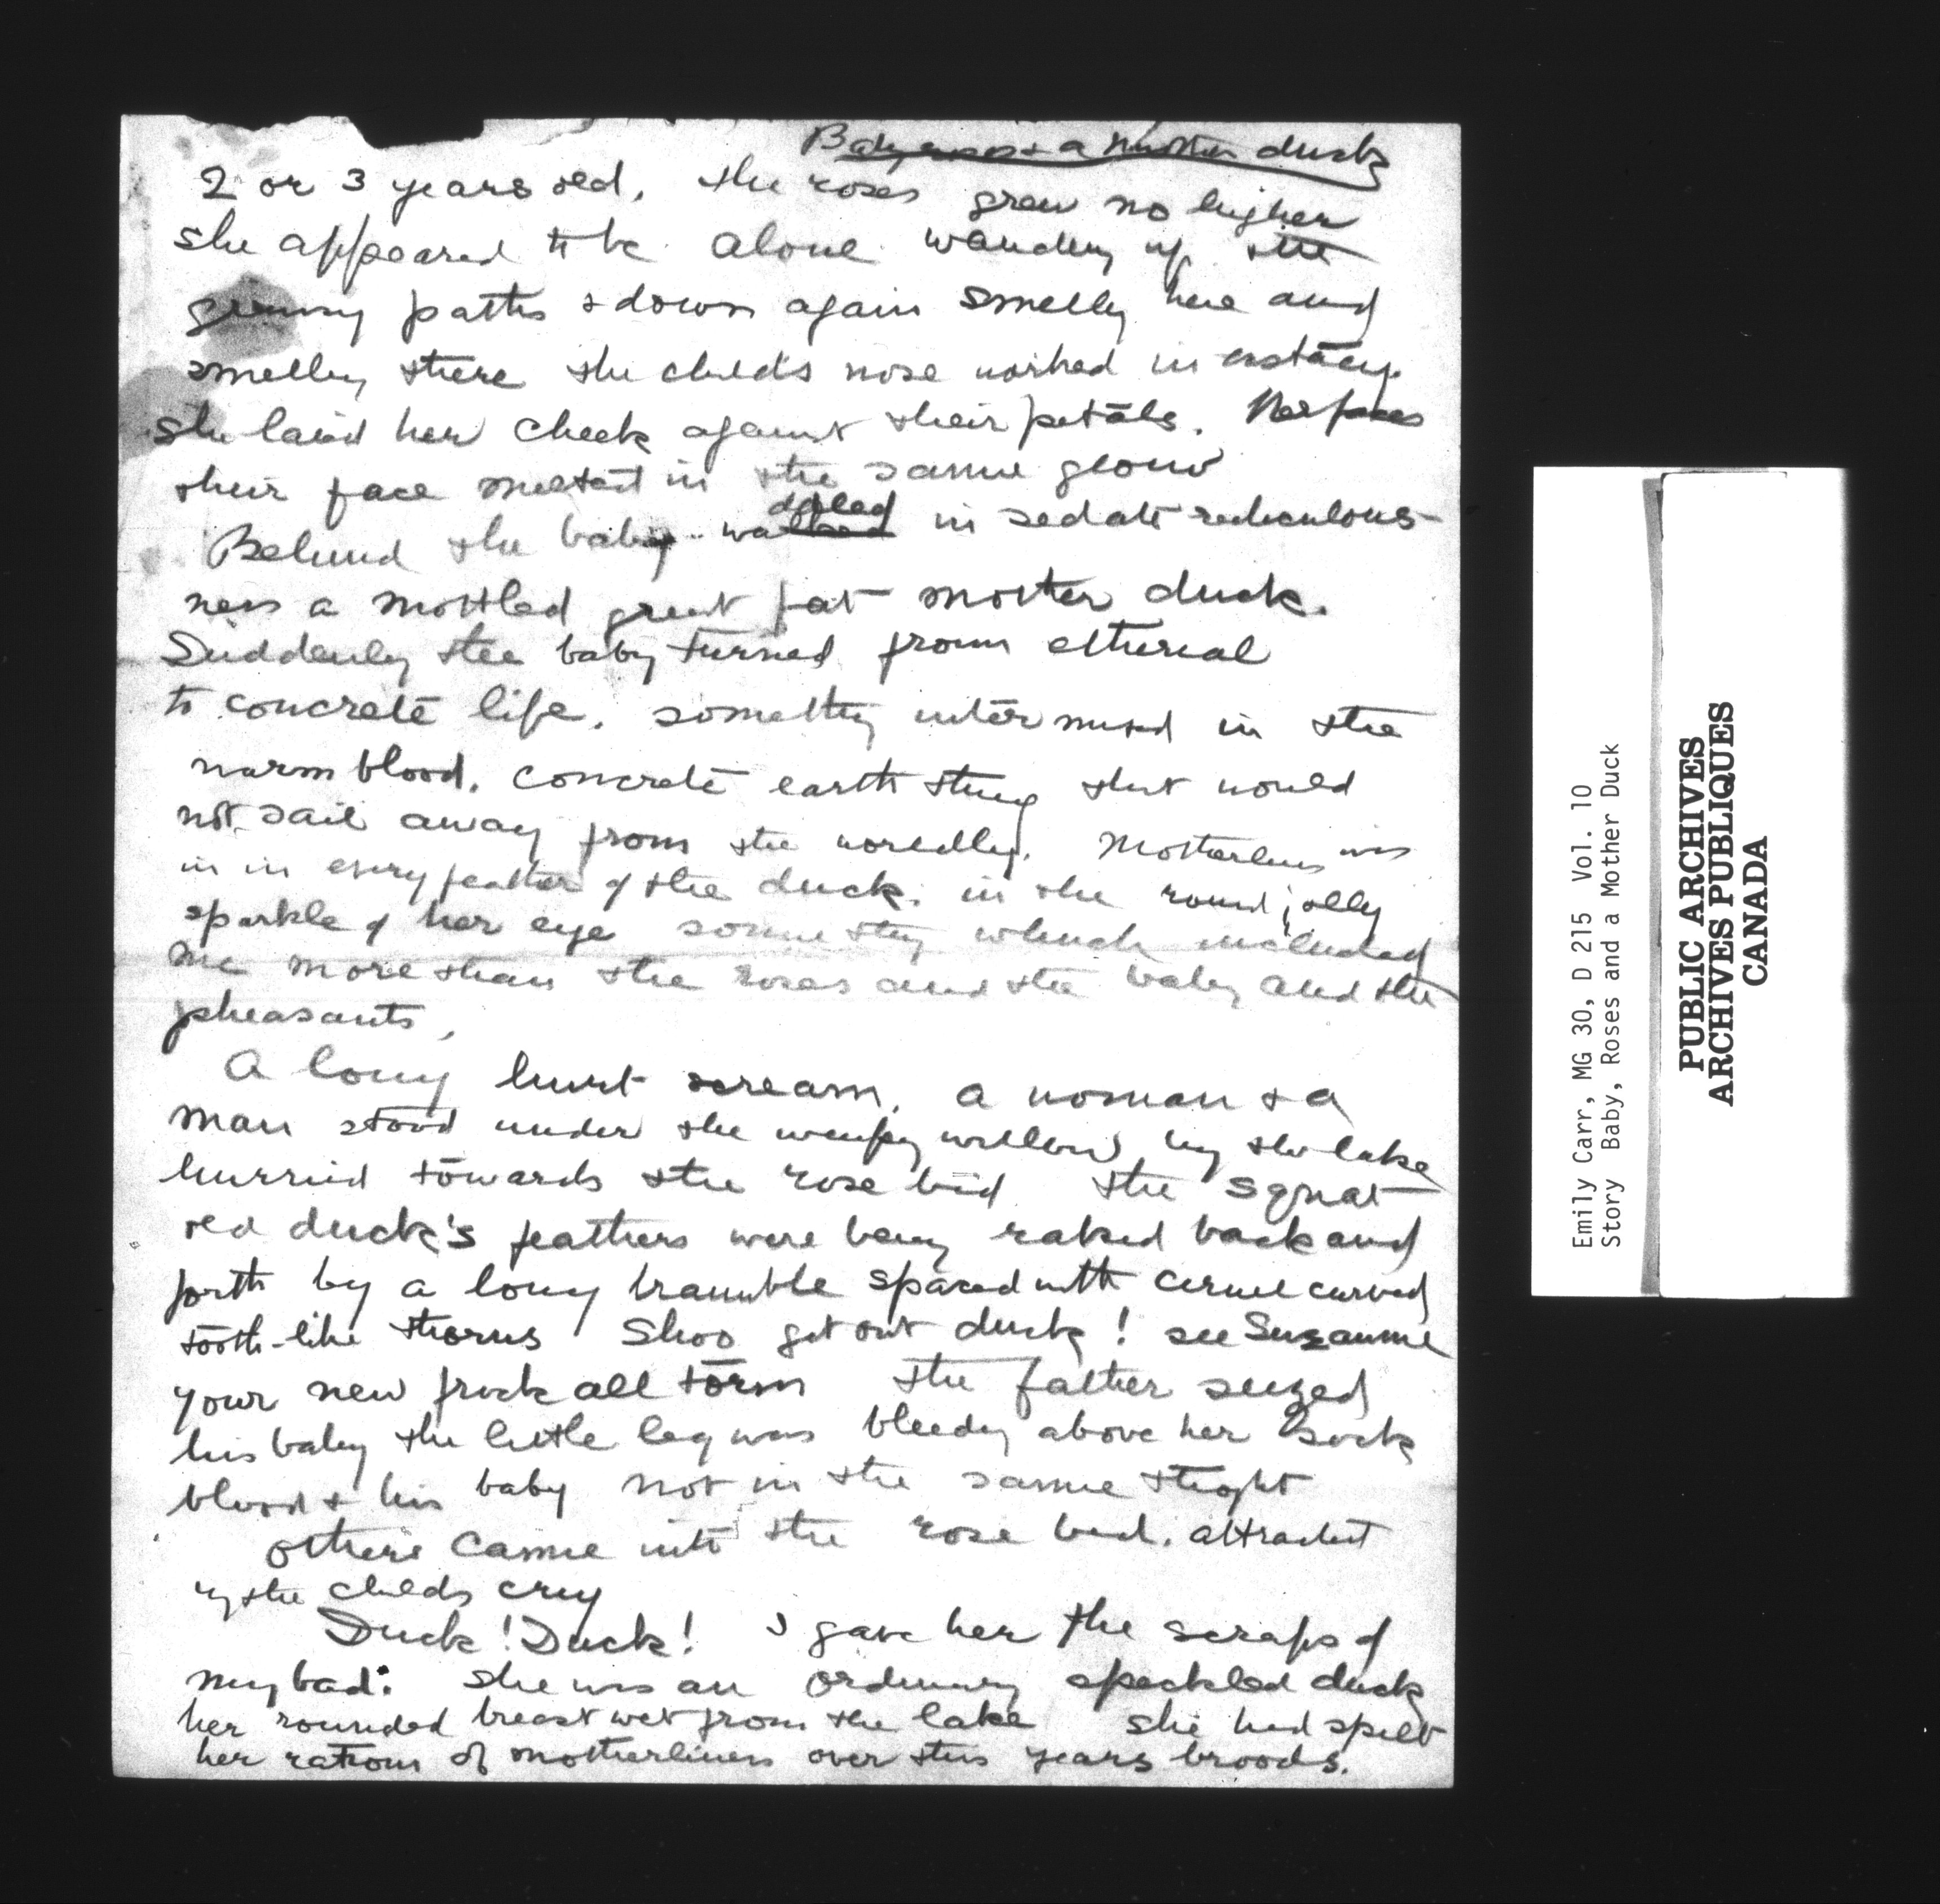 Baby roses & a Mother duck
2 or 3 years old, the roses grew no higher
she appeared to be alone wandery up the
paths & down again smelly here and
smelly there the childs nose worked in exstacy.
she laid her cheek against their petals. Her face
their face in the same glow
Behind the baby in sedate rediculous-
ness a mottled great fat mother duck.
Suddenly the baby turned from etherial
to concrete life. something inter mixed in the
warm blood. concrete earth thing that would
not sail away from the worldly. Motherlines was
in in every feather of the duck. in the round jolly
sparkle of her eye some thing which included
me more than the roses and the baby and the
pheasants,
A long hurt scream. a woman & a
man stood under the weepy willow by the lake
hurried towards the rose bed the squat
old duck's feathers were being raked back and
forth by a long bramble spaced with curved
tooth-like thorns Shoo get out duck! see Suzanne
your new frock all torn the father seized
his baby the little leg was bleedy above her sock
blood & his baby not in the same thight
others came into the rose bed. attracted
by the childs cry
Duck! Duck! I gave her the scraps of
my she was an ordinary speckled duck
her rounded breast wet from the lake she had spilt
her rations of motherlines over this years broods.
Emily Carr, MG 30, D 215 Vol. 10
Story Baby, Roses and a Mother Duck
PUBLIC ARCHIVES
ARCHIVES PUBLIQUES
CANADA